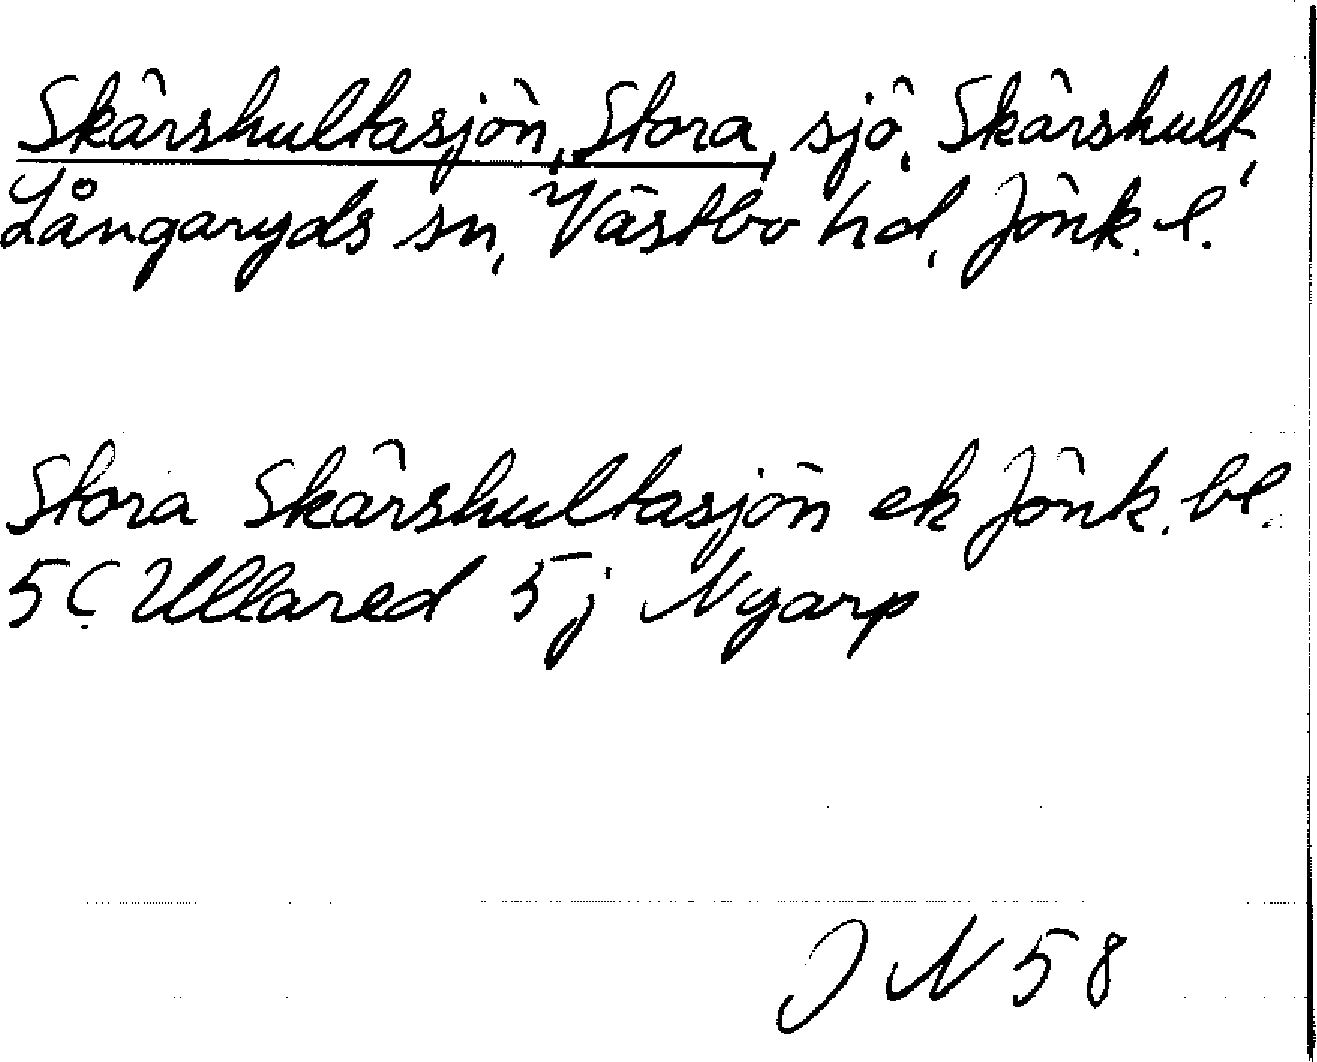 Skärshultasjön, Stora, sjö, Skärshult,
Långaryds sn, Västbo hd, Jönk. l.
Stora Skärshultasjön ek Jönk. bl.
5C Ullared 5j Nyarp
J N 58